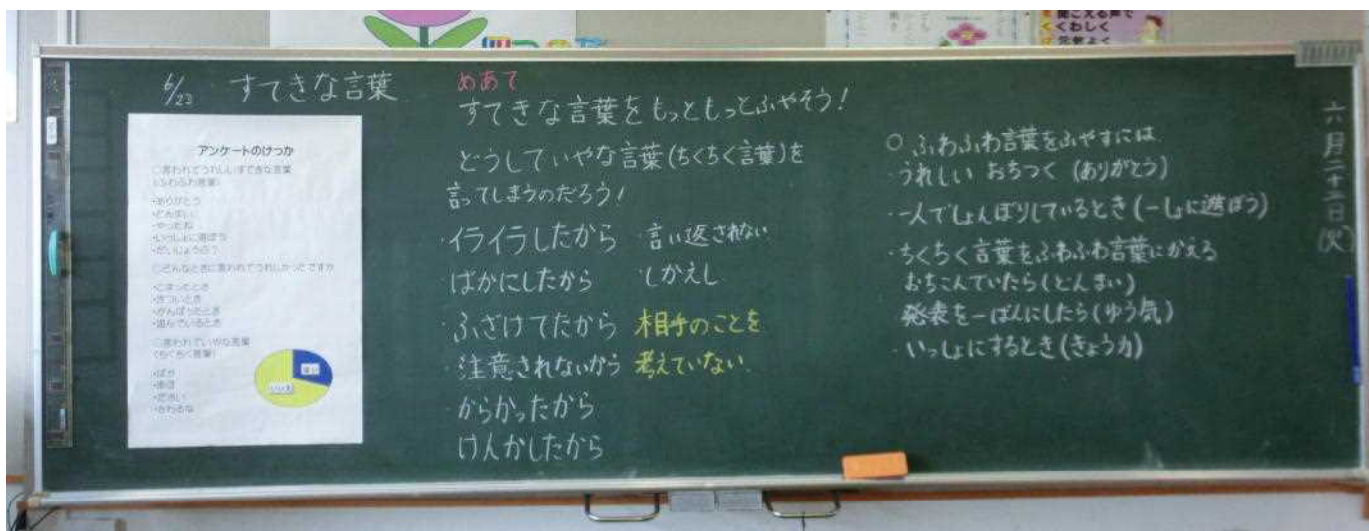 聞こえる声で
くわしく
元気よく
6/23 すてきな言葉
アンケートのけっか
○言われてうれしいすてきな言葉
(ふわふわ言葉)
・ありがとう
・どんまい
・やったね
・いっしょに遊ぼう
・だいじょうぶ?
○どんなときに言われてうれしかったですか
・こまったとき
・きついとき
・がんばったとき
・遊んでいるとき
○言われていやな言葉
(ちくちく言葉)
・ばか
・きわるな
はい
いいえ
めあて
すてきな言葉をもっともっとふやそう!
どうしていやな言葉(ちくちく言葉)を
言ってしまうのだろう!
・イライラしたから ・言い返されない
ばかにしたから ・しかえし
・ふざけてたから 相手のことを
・注意されないから 考えていない.
・からかったから
けんかしたから
○ふわふわ言葉をふやすには
うれしい おちつく (ありがとう)
・一人でしょんぼりしているとき(一しょに遊ぼう)
・ちくちく言葉をふわふわ言葉にかえる
おちこんでいたら(どんまい)
発表を一ばんにしたら(ゆう気)
・いっしょにするとき(きょう力)
六月二十三日(火)